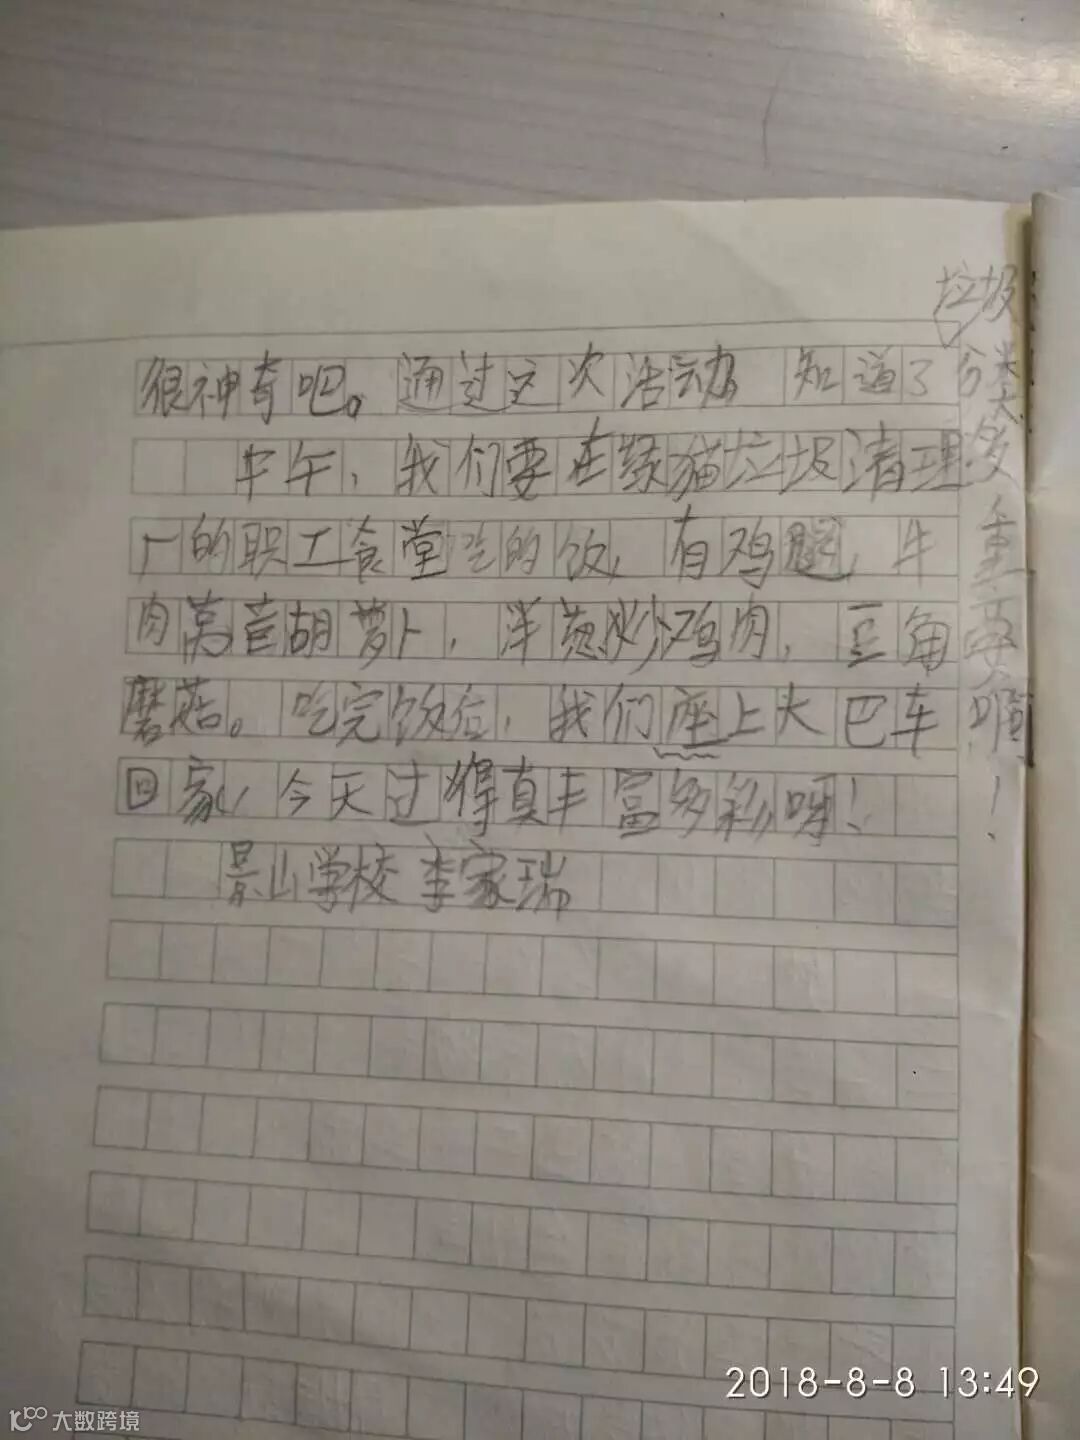 垃圾
很神奇吧。通过这次活动 知道了分类
中午，我们要在绿猫垃圾清理
厂的职工食堂吃的饭，有鸡腿，牛
肉莴苣胡萝卜，洋葱炒鸡肉，豆角
蘑菇。吃完饭后，我们座上大巴车
回家，今天过得真丰富多彩呀！
多重要啊！
景山学校 李家瑞
2018-8-8 13:49
大数跨境